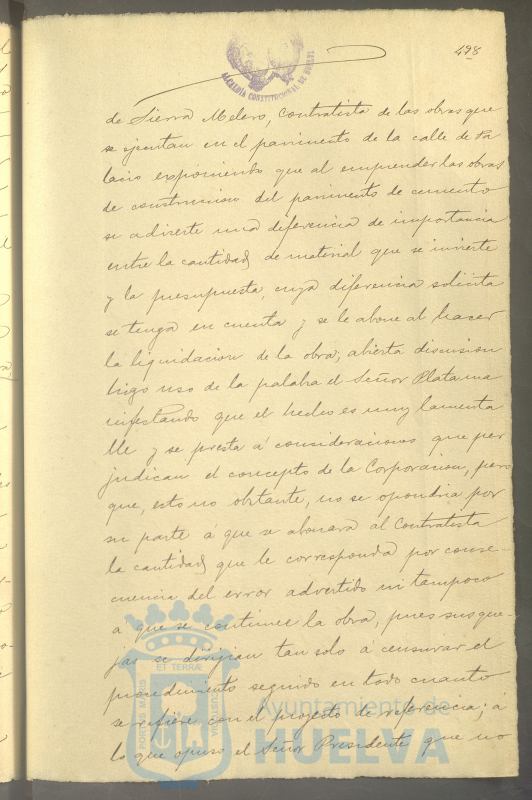 498
ALCALDÍA CONSTITUCIONAL DE HUELVA
de Sierra Melero, contratista de las obras que
se ejecutan en el pavimento de la calle de Pa
lacio exponiendo que al emprender las obras
de construccion del pavimento de cemento
se advierte una diferencia de importancia
entre la cantidad de material que se invierte
y la presupuesta, cuya diferencia solicita
se tenga en cuenta y se le abone al hacer
la liquidacion de la obra; abierta discusion
hizo uso de la palabra el Señor Plata ma
nifestando que el hecho es muy lamenta
ble y se presta á consideraciones que per
judican el concepto de la Corporacion, pero
que, esto no obstante, no se opondria por
su parte á que se abonara al Contratista
la cantidad que le corresponda por conse-
cuencia del error advertido ni tampoco
a que se continue la obra, pues sus que-
jas se dirijian tan solo á censurar el
procedimiento seguido en todo cuanto
se refiere con el proyecto de referencia; á
lo que opuso el Señor Presidente que no
PORTUS MARIS ET TERRAE CUSTODIA
Ayuntamiento de
HUELVA